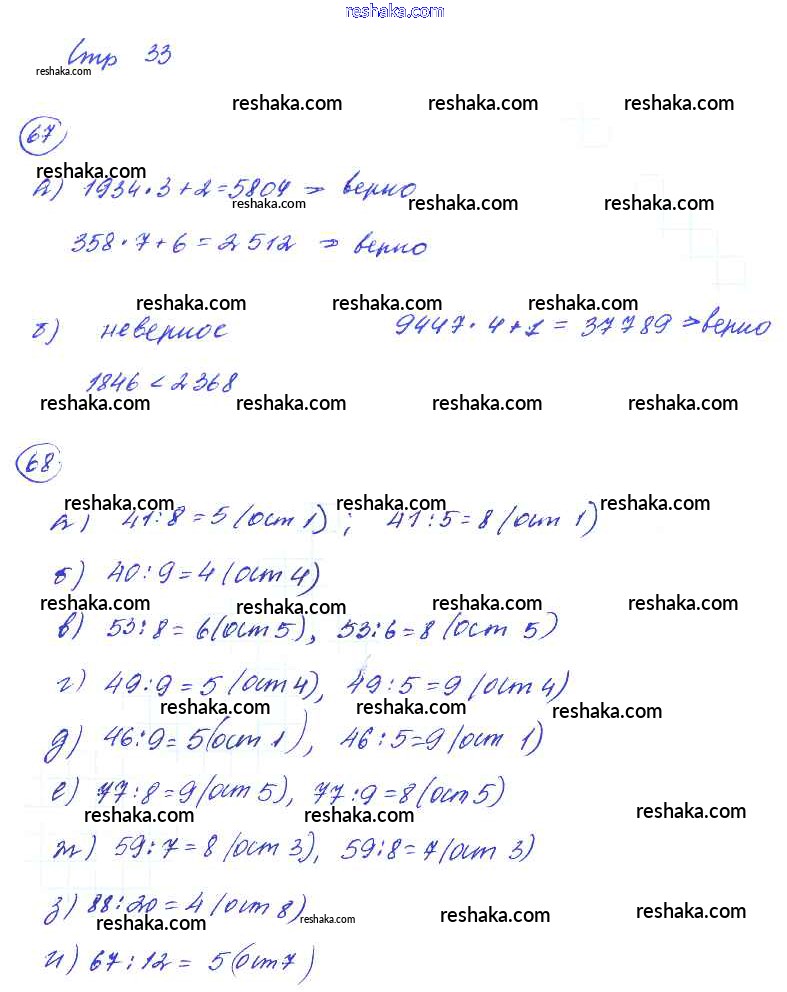 reshaka.com
Стр 33
reshaka.com
reshaka.com reshaka.com reshaka.com
67
reshaka.com
а) 1934·3+2=5804 ⇒ верно
reshaka.com reshaka.com reshaka.com
358·7+6=2512 ⇒ верно
reshaka.com reshaka.com reshaka.com
б) неверное 9447·4+1=37789 ⇒ верно
1846<2368
reshaka.com reshaka.com reshaka.com reshaka.com
68
reshaka.com reshaka.com reshaka.com
а) 41:8=5(ост 1); 41:5=8(ост 1)
б) 40:9=4(ост 4)
reshaka.com reshaka.com reshaka.com reshaka.com
в) 53:8=6(ост 5), 53:6=8(ост 5)
г) 49:9=5(ост 4), 49:5=9(ост 4)
reshaka.com reshaka.com reshaka.com
д) 46:9=5(ост 1), 46:5=9(ост 1)
е) 77:8=9(ост 5), 77:9=8(ост 5)
reshaka.com reshaka.com reshaka.com
ж) 59:7=8(ост 3), 59:8=7(ост 3)
з) 88:20=4(ост 8)
reshaka.com reshaka.com reshaka.com reshaka.com
и) 67:12=5(ост 7)